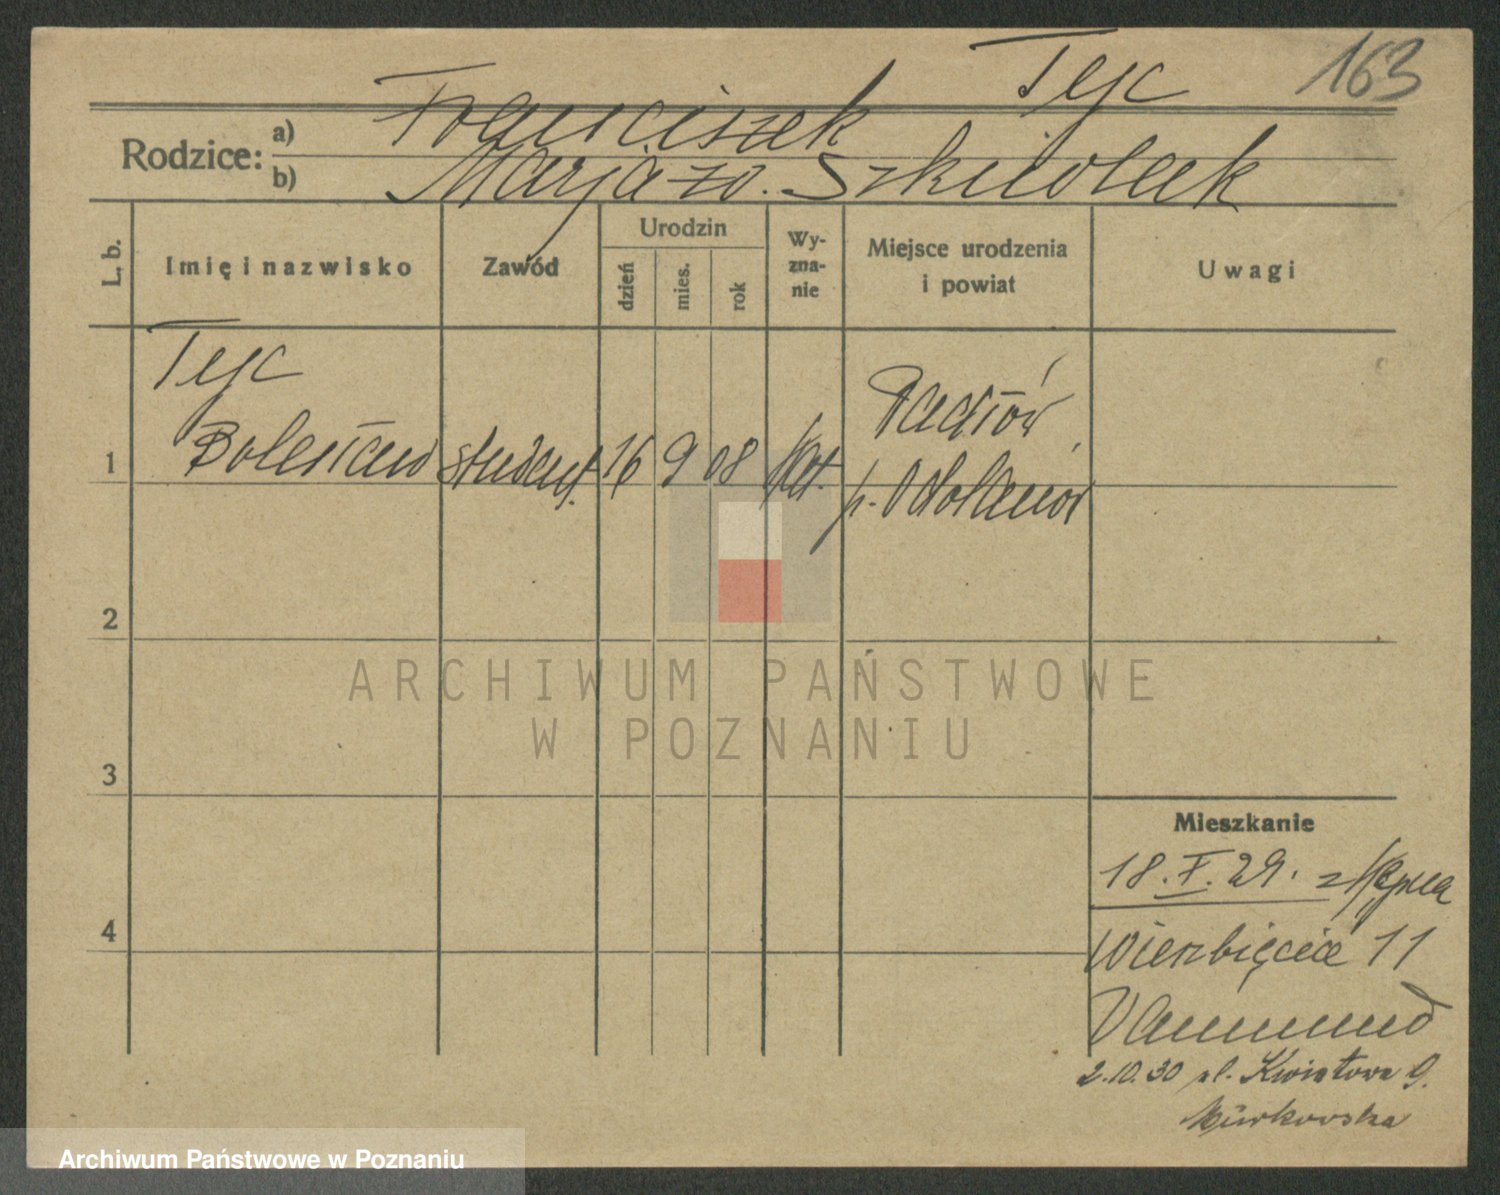 Tyc 163
Rodzice: a) Franciszek
b) Marja zd. Szkudlarek
L. b.
Imię i nazwisko
Zawód
Urodzin
dzień
mies.
rok
Wy-
zna-
nie
Miejsce urodzenia
i powiat
Uwagi
Tyc
1 Bolesław student 16 9 08 kat.
p. Odolanów
2
3
4
ARCHIWUM PAŃSTWOWE
W POZNANIU
Mieszkanie
18.X.29. z Kępna
Wierzbięcice 11
2.10.30 ul. Kwiatowa 9.
Archiwum Państwowe w Poznaniu